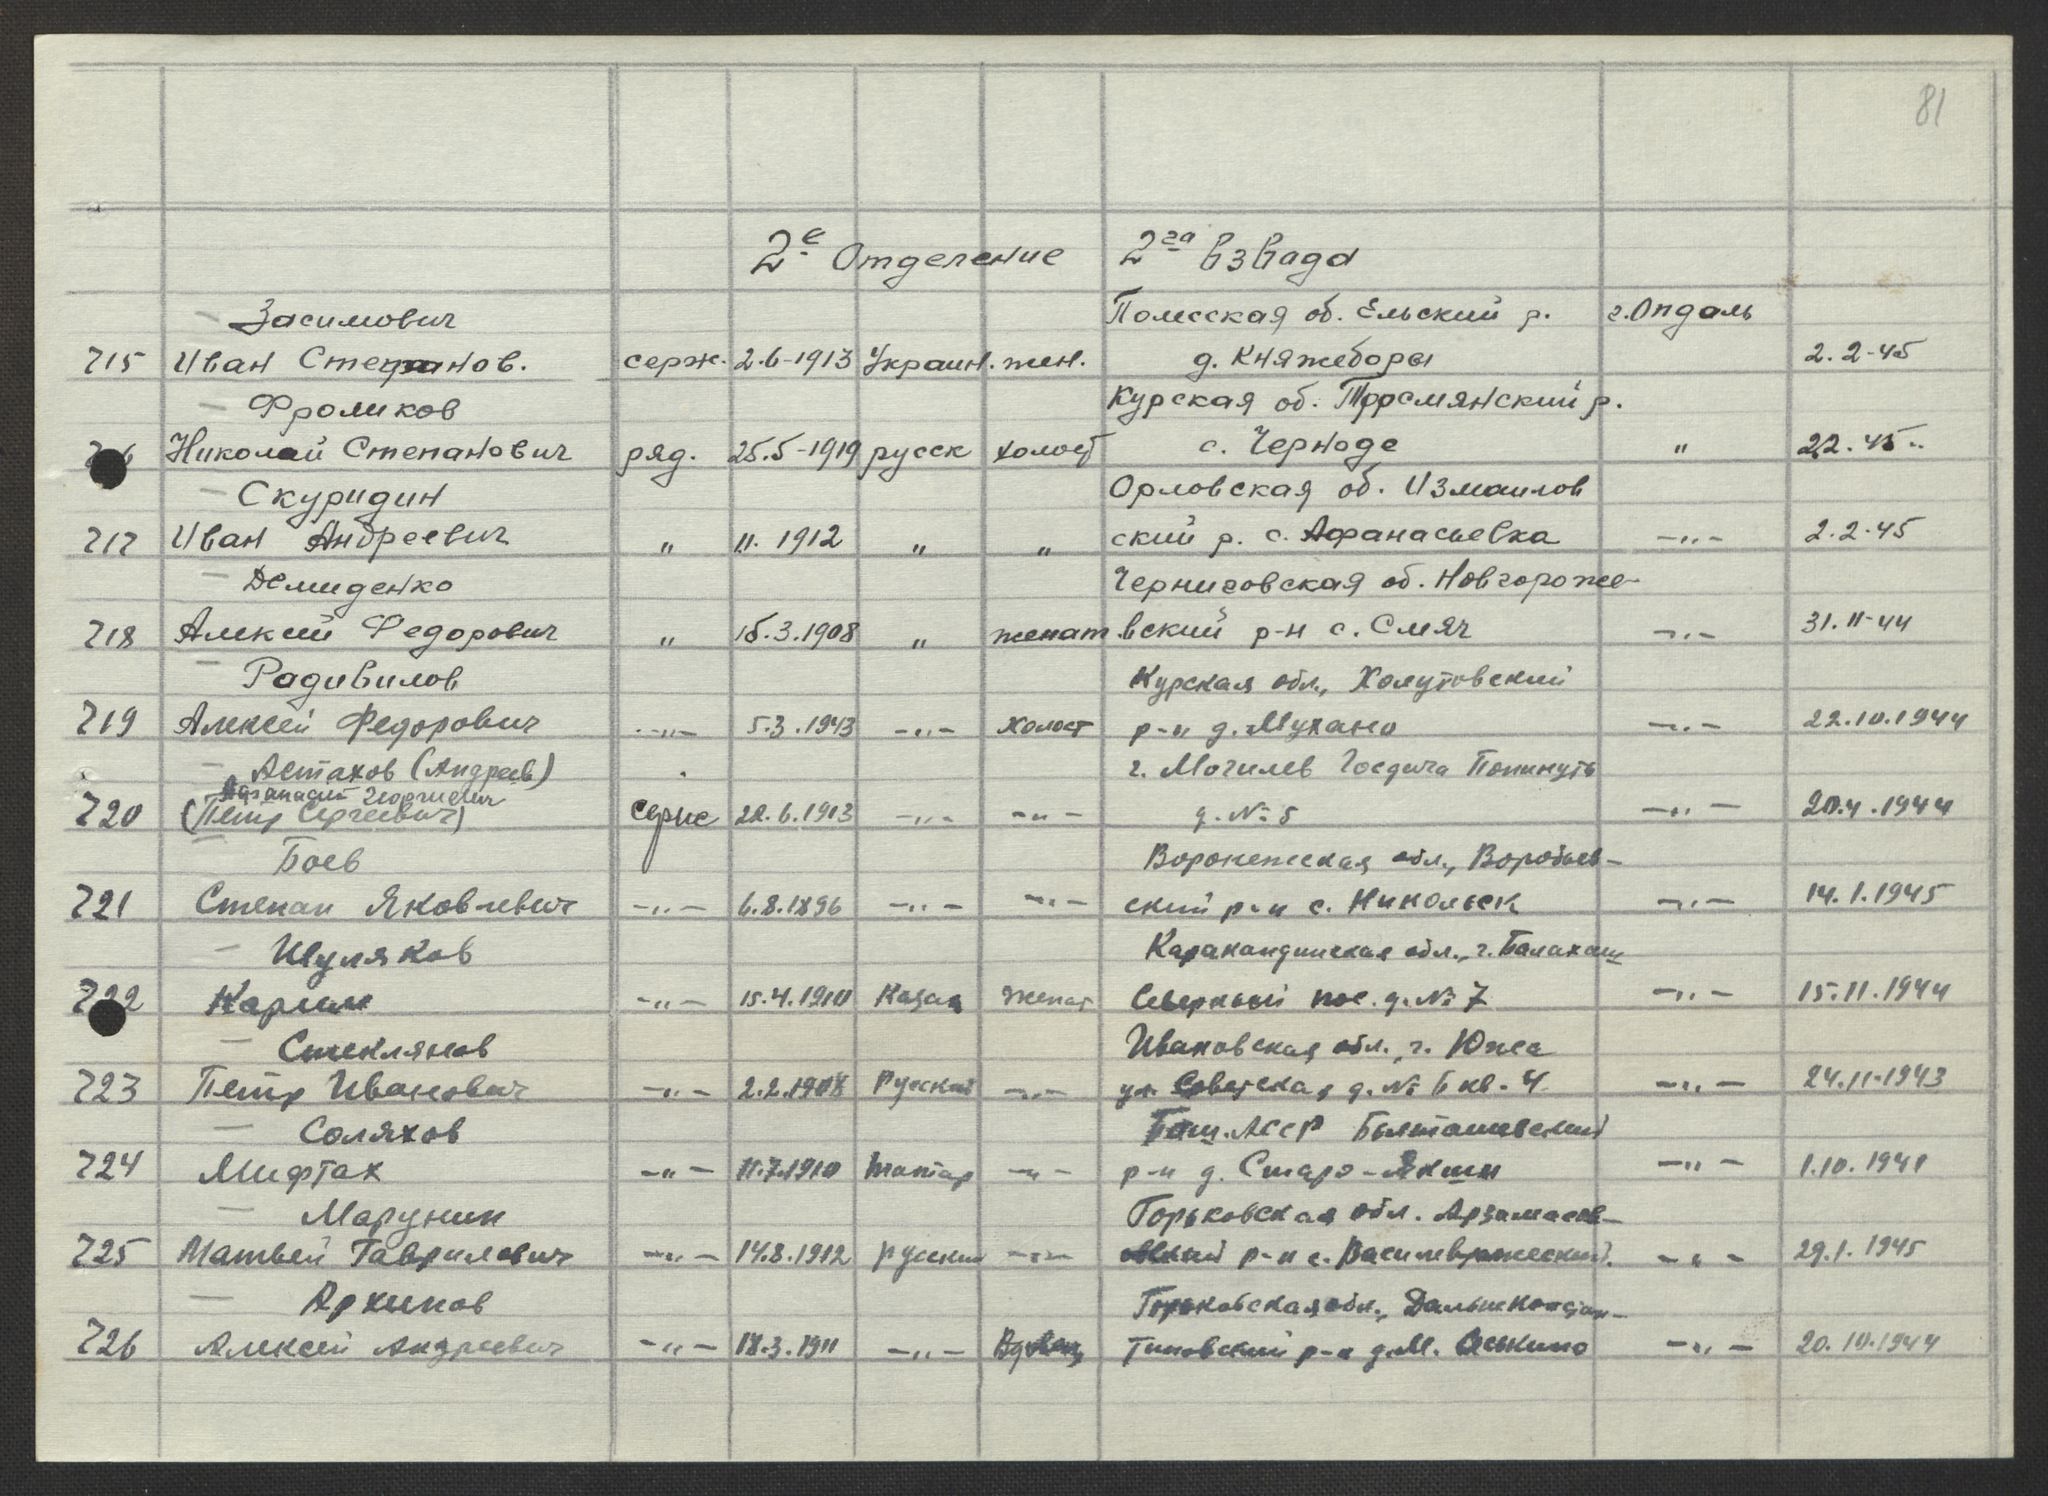 81
2е Отделение 2га взвада
Засимович Полесская об. Ельский р. г. Опдаль
715 Иван Степанов. серж. 2.6-1913 Украин. жен. д. Княжеборы 2.2-45
Фроликов Курская об. р.
Николай Степанович ряд. 25.5-1919 русск холост с. Черноде " 2.2.45
Скуридин Орловская об. Измаилов
717 Иван Андреевич " 11.1912 " " ский р. с. Афанасьевка -"- 2.2-45
Демиденко Черниговская об. Новгороже-
718 Алексей Федорович " 15.3.1908 " женат вский р-н с. Смяч -"- 31.11-44
Радивилов Курская обл., Хомутовский
719 Алексей Федорович -"- 5.3.1943 -"- холост р-н д. Мухано -"- 22.10.1944
Астахов (Андреев) г. Могилев
Афанасий Георгиевич
720 (Петр Сергеевич) серж 22.6.1913 -"- -"- д. № 5 -"- 20.4.1944
Боев Воронежская обл., Воробьев-
721 Степан Яковлевич -"- 6.8.1896 -"- -"- ский р-н с. Никольск -"- 14.1.1945
Шуляков Карагандинская обл., г. Балахаш
722 Карим -"- 15.4.1910 Казах женат Северный пос. д. № 7 -"- 15.11.1944
Стеклянов Ивановская обл., г. Южа
723 Петр Иванович -"- 2.2.1908 Русский -"- ул. Советская д. № 6 кв. 4 -"- 24.11.1943
Соляхов Баш. АССР
724 Мифтах -"- 11.7.1910 татар -"- р-н д. Старо-Якши -"- 1.10.1941
Марунин Горьковская обл. Арзамасов-
725 Матвей Гаврилович -"- 14.8.1912 русский -"- р-н с. -"- 29.1.1945
Архипов Горьковская обл., Дальнеконстан-
726 Алексей Андреевич -"- 18.3.1911 -"- Вдовец тиновский р-н д. М. Оськино -"- 20.10.1944